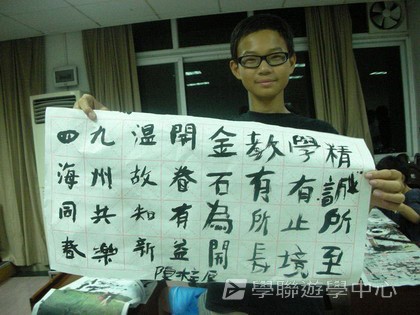 精誠所至
學有止境
教有所長
金石為開
開眷有益
温故知新
九州共樂
四海同春
學聯遊學中心